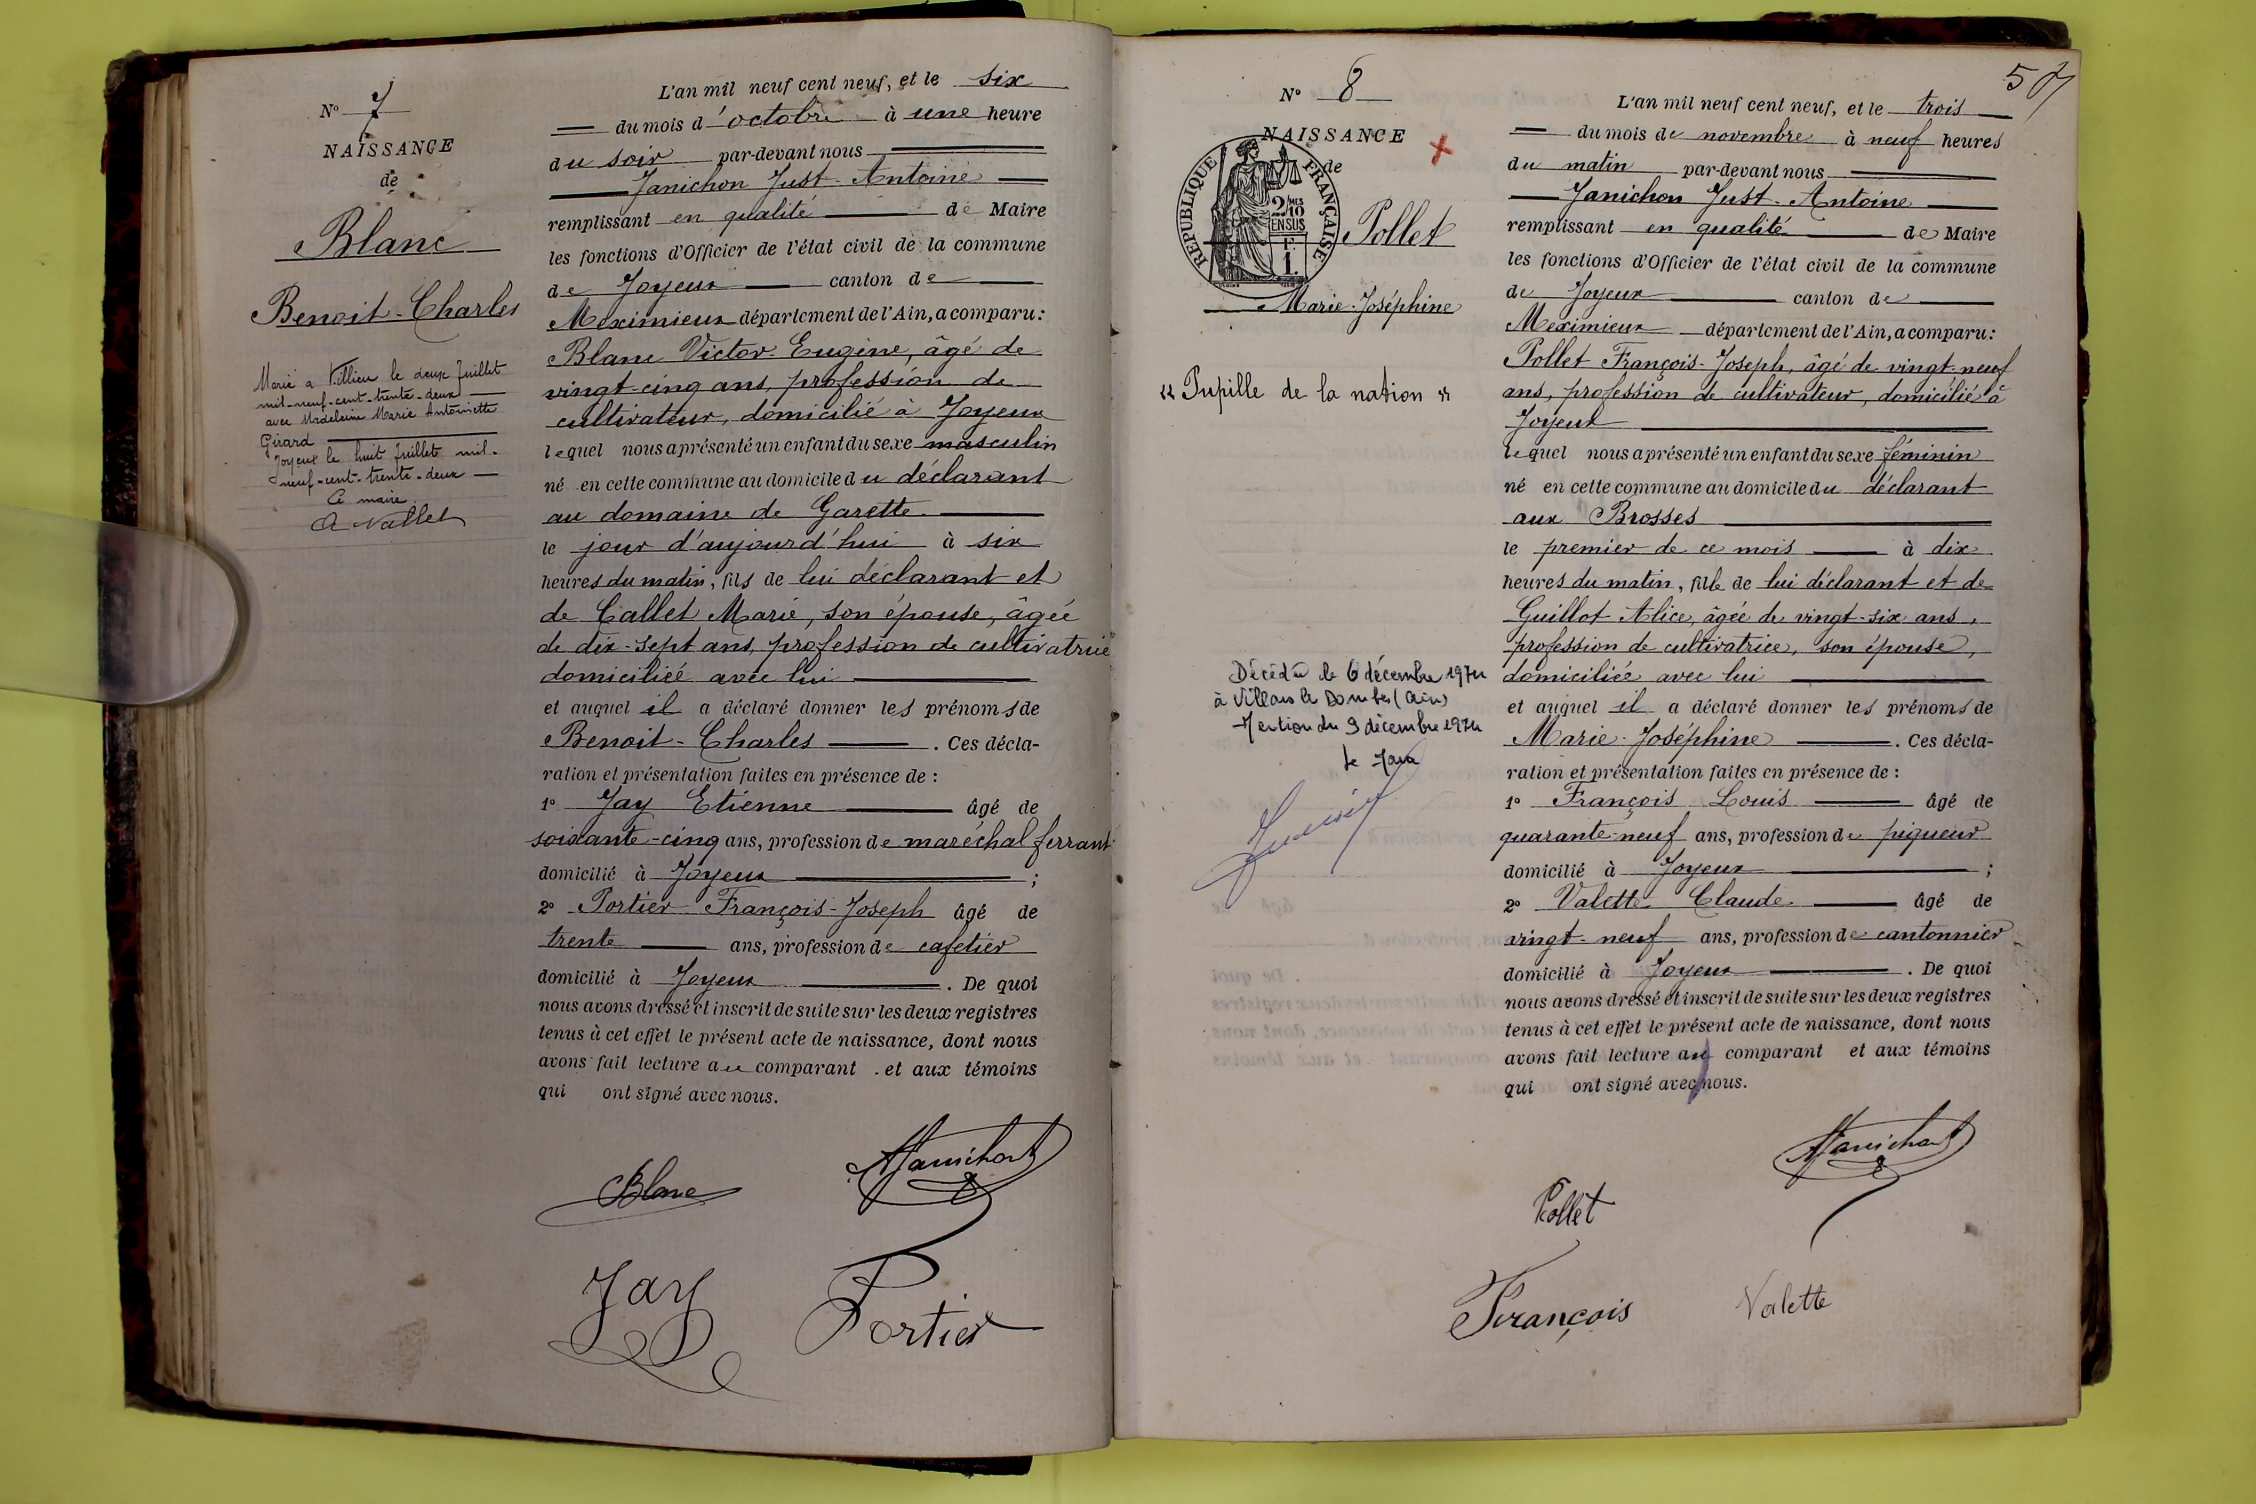 N° 7
NAISSANCE
de
Blanc
Benoit-Charles
Marié à Villieu le deux Juillet
mil-neuf-cent-trente-deux
avec Madeleine Marie Antoinette
Girard
Joyeux le huit Juillet mil-
neuf-cent-trente-deux
Le maire
A Vallet
L'an mil neuf cent neuf, et le six
du mois d'octobre à une heure
du soir par-devant nous
Janichon Just-Antoine
remplissant en qualité de Maire
les fonctions d'Officier de l'état civil de la commune
de Joyeux canton de
Meximieux département de l'Ain, a comparu:
Blanc Victor-Eugène, âgé de
vingt-cinq ans, profession de
cultivateur, domicilié à Joyeux
lequel nous a présenté un enfant du sexe masculin
né en cette commune au domicile du déclarant
au domaine de Garette
le jour d'aujourd'hui à six
heures du matin, fils de lui déclarant et
de Callet Marie, son épouse, âgée
de dix-sept ans, profession de cultivatrice
domiciliée avec lui
et auquel il a déclaré donner les prénoms de
Benoit-Charles. Ces décla-
ration et présentation faites en présence de :
1° Jay Etienne âgé de
soixante-cinq ans, profession de maréchal ferrant
domicilié à Joyeux ;
2° Portier François-Joseph âgé de
trente ans, profession de cafetier
domicilié à Joyeux. De quoi
nous avons dressé et inscrit de suite sur les deux registres
tenus à cet effet le présent acte de naissance, dont nous
avons fait lecture au comparant et aux témoins
qui ont signé avec nous.
Blanc
Janichon
Jay
Portier
57
N° 8
NAISSANCE
de
REPUBLIQUE FRANÇAISE
2/10
EN SUS
1.
Pollet
Marie-Joséphine
"Pupille de la nation"
Décédée le 6 décembre 1974
à Villars les Dombes (Ain)
Mention du 9 décembre 1974
Le Maire
L'an mil neuf cent neuf, et le trois
du mois de novembre à neuf heures
du matin par-devant nous
Janichon Just-Antoine
remplissant en qualité de Maire
les fonctions d'Officier de l'état civil de la commune
de Joyeux canton de
Meximieux département de l'Ain, a comparu:
Pollet François-Joseph, âgé de vingt-neuf
ans, profession de cultivateur, domicilié à
Joyeux
lequel nous a présenté un enfant du sexe féminin
né en cette commune au domicile du déclarant
aux Brosses
le premier de ce mois à dix
heures du matin, fille de lui déclarant et de
Guillot Alice, âgée de vingt-six ans,
profession de cultivatrice, son épouse,
domiciliée avec lui
et auquel il a déclaré donner les prénoms de
Marie-Joséphine. Ces décla-
ration et présentation faites en présence de :
1° François Louis âgé de
quarante-neuf ans, profession de piqueur
domicilié à Joyeux ;
2° Valette Claude âgé de
vingt-neuf ans, profession de cantonnier
domicilié à Joyeux. De quoi
nous avons dressé et inscrit de suite sur les deux registres
tenus à cet effet le présent acte de naissance, dont nous
avons fait lecture au comparant et aux témoins
qui ont signé avec nous.
Janichon
Pollet
François
Valette